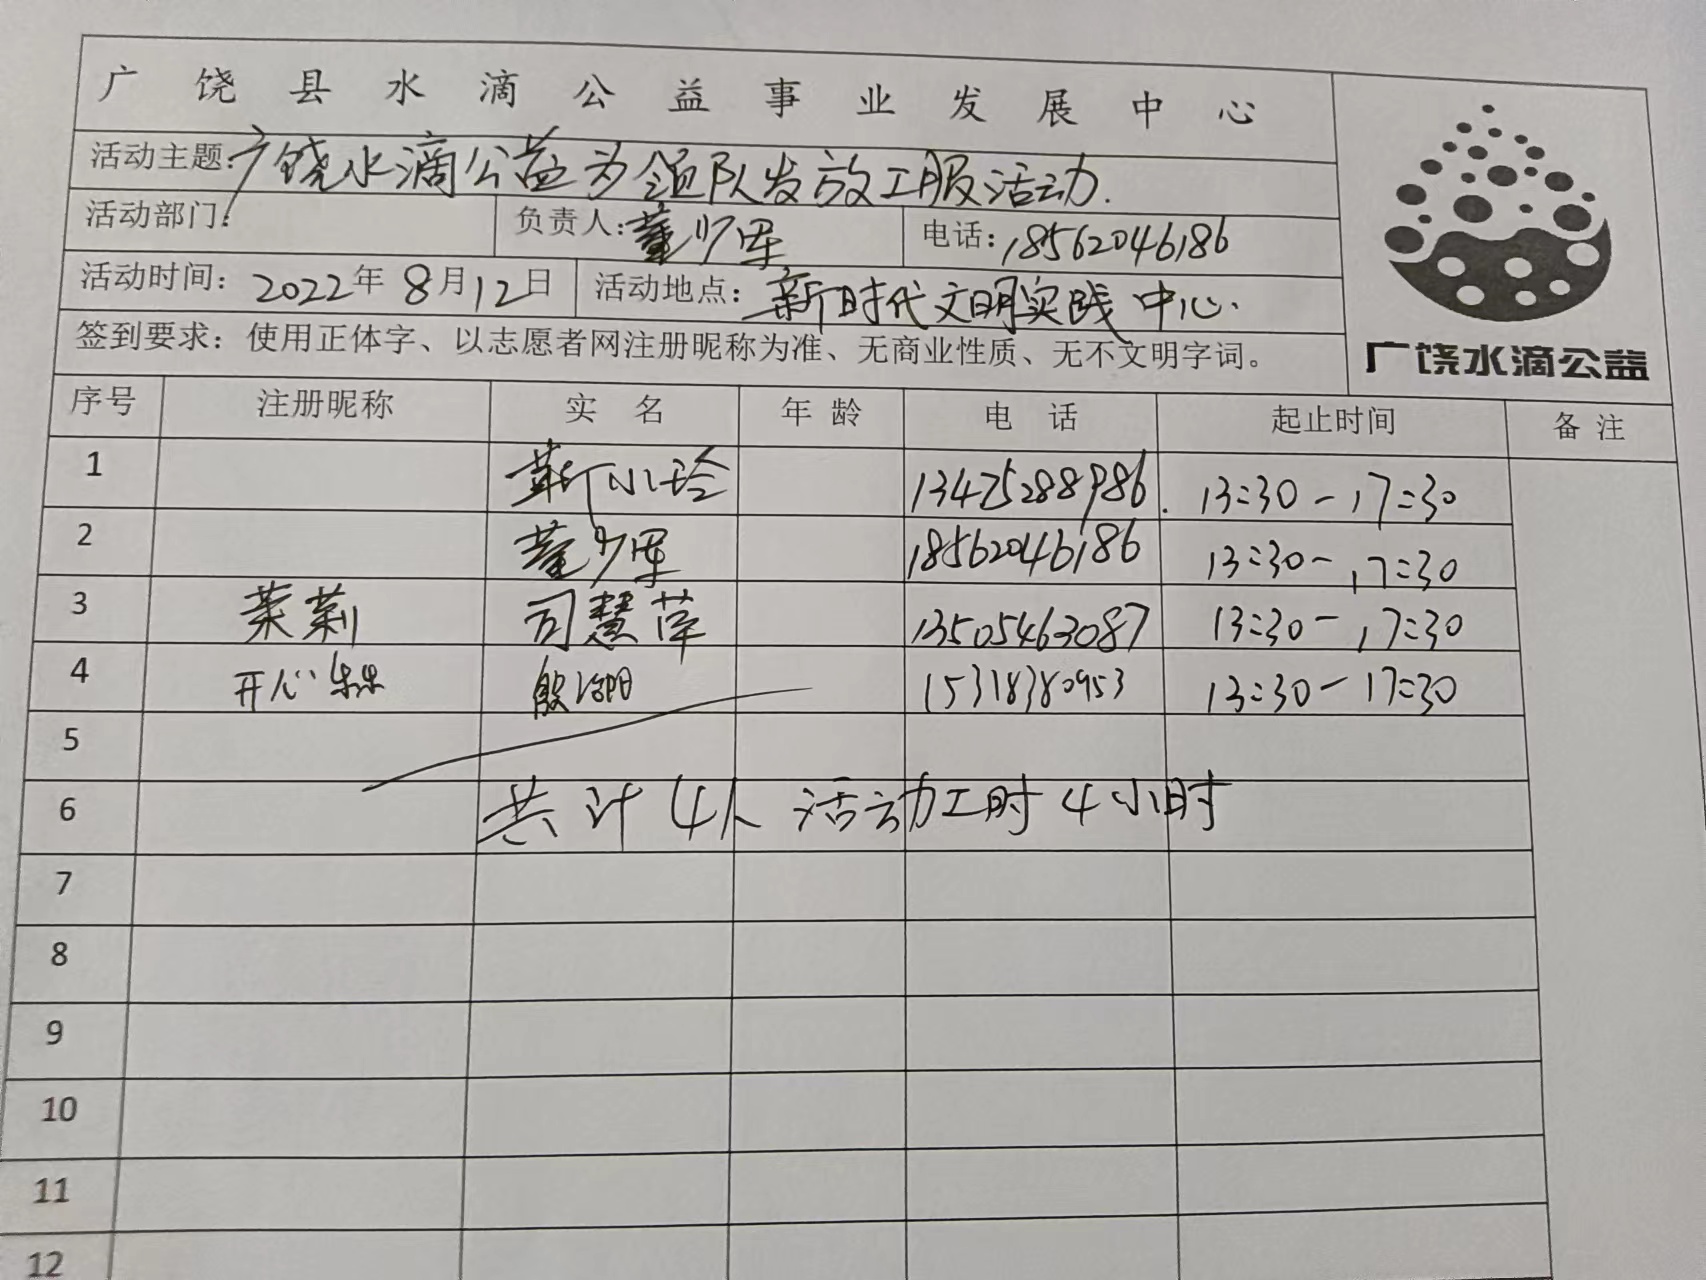 广饶县水滴公益事业发展中心
活动主题:广饶水滴公益为领队发放工服活动.
活动部门: 负责人:董少军 电话:18562046186
活动时间:2022年8月12日 活动地点:新时代文明实践中心.
签到要求:使用正体字、以志愿者网注册昵称为准、无商业性质、无不文明字词。
广饶水滴公益
序号 注册昵称 实名 年龄 电话 起止时间 备注
1 靳小玲 13475288986. 13:30-17:30
2 董少军 18562046186 13:30-17:30
3 茉莉 司慧萍 13505463087 13:30-17:30
4 开心 殷 15318380953 13:30-17:30
5
6 共计4人 活动工时4小时
7
8
9
10
11
12